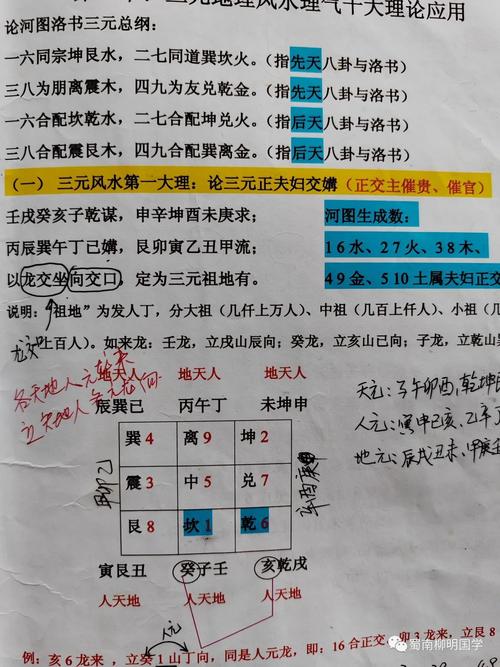 三元地理风水理气十大理论应用
论河图洛书三元总纲：
一六同宗坤艮水，二七同道巽坎火。（指先天八卦与洛书）
三八为朋离震木，四九为友兑乾金。（指先天八卦与洛书）
一六合配坎乾水，二七合配坤兑火。（指后天八卦与洛书）
三八合配震艮木，四九合配巽离金。（指后天八卦与洛书）
（一） 三元风水第一大理：论三元正夫妇交媾（正交主催贵、催官）
壬戌癸亥子乾谋，申辛坤酉未庚求；
河图生成数：
丙辰巽午丁已媾，艮卯寅乙丑甲流；
1 6 水、2 7 火、3 8 木、
以龙交坐向交口，定为三元祖地有。
4 9 金、5 10 土属夫妇正交
说明：“祖地”为发人丁，分大祖（几仟上万人）、中祖（几百上仟人）、小祖（几
上百人）。如来龙：壬龙，立戌山辰向；癸龙，立亥山已向；子龙，立乾山
龙交
各天地人元龙来
立天地人各元龙向
地天人 地天人 地天人
辰巽已 丙午丁 未坤申
天元：子午卯酉，乾坤艮
人元：寅申已亥、乙辛丁
地元：辰戌丑未、甲庚壬
巽 4 离 9 坤 2
震 3 中 5 兑 7
艮 8 坎 1 乾 6
甲卯乙
辛酉庚
寅艮丑 癸子壬 亥乾戌
人天地 人天地 人天地
人元
例：亥 6 龙来，立癸 1 山丁向，同是人元龙，即：16 合正交、卯 3 龙来，立艮 8
蜀南柳明国学